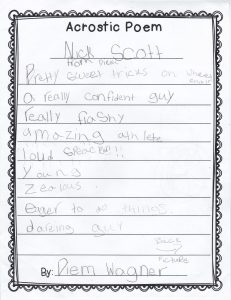 Acrostic Poem
Nick Scott
Pretty sweet tricks on
a really confident guy
really flashy
amazing athlete
loud speaker!!
young
zealous
eager to do things
daring guy
By: Diem Wagner